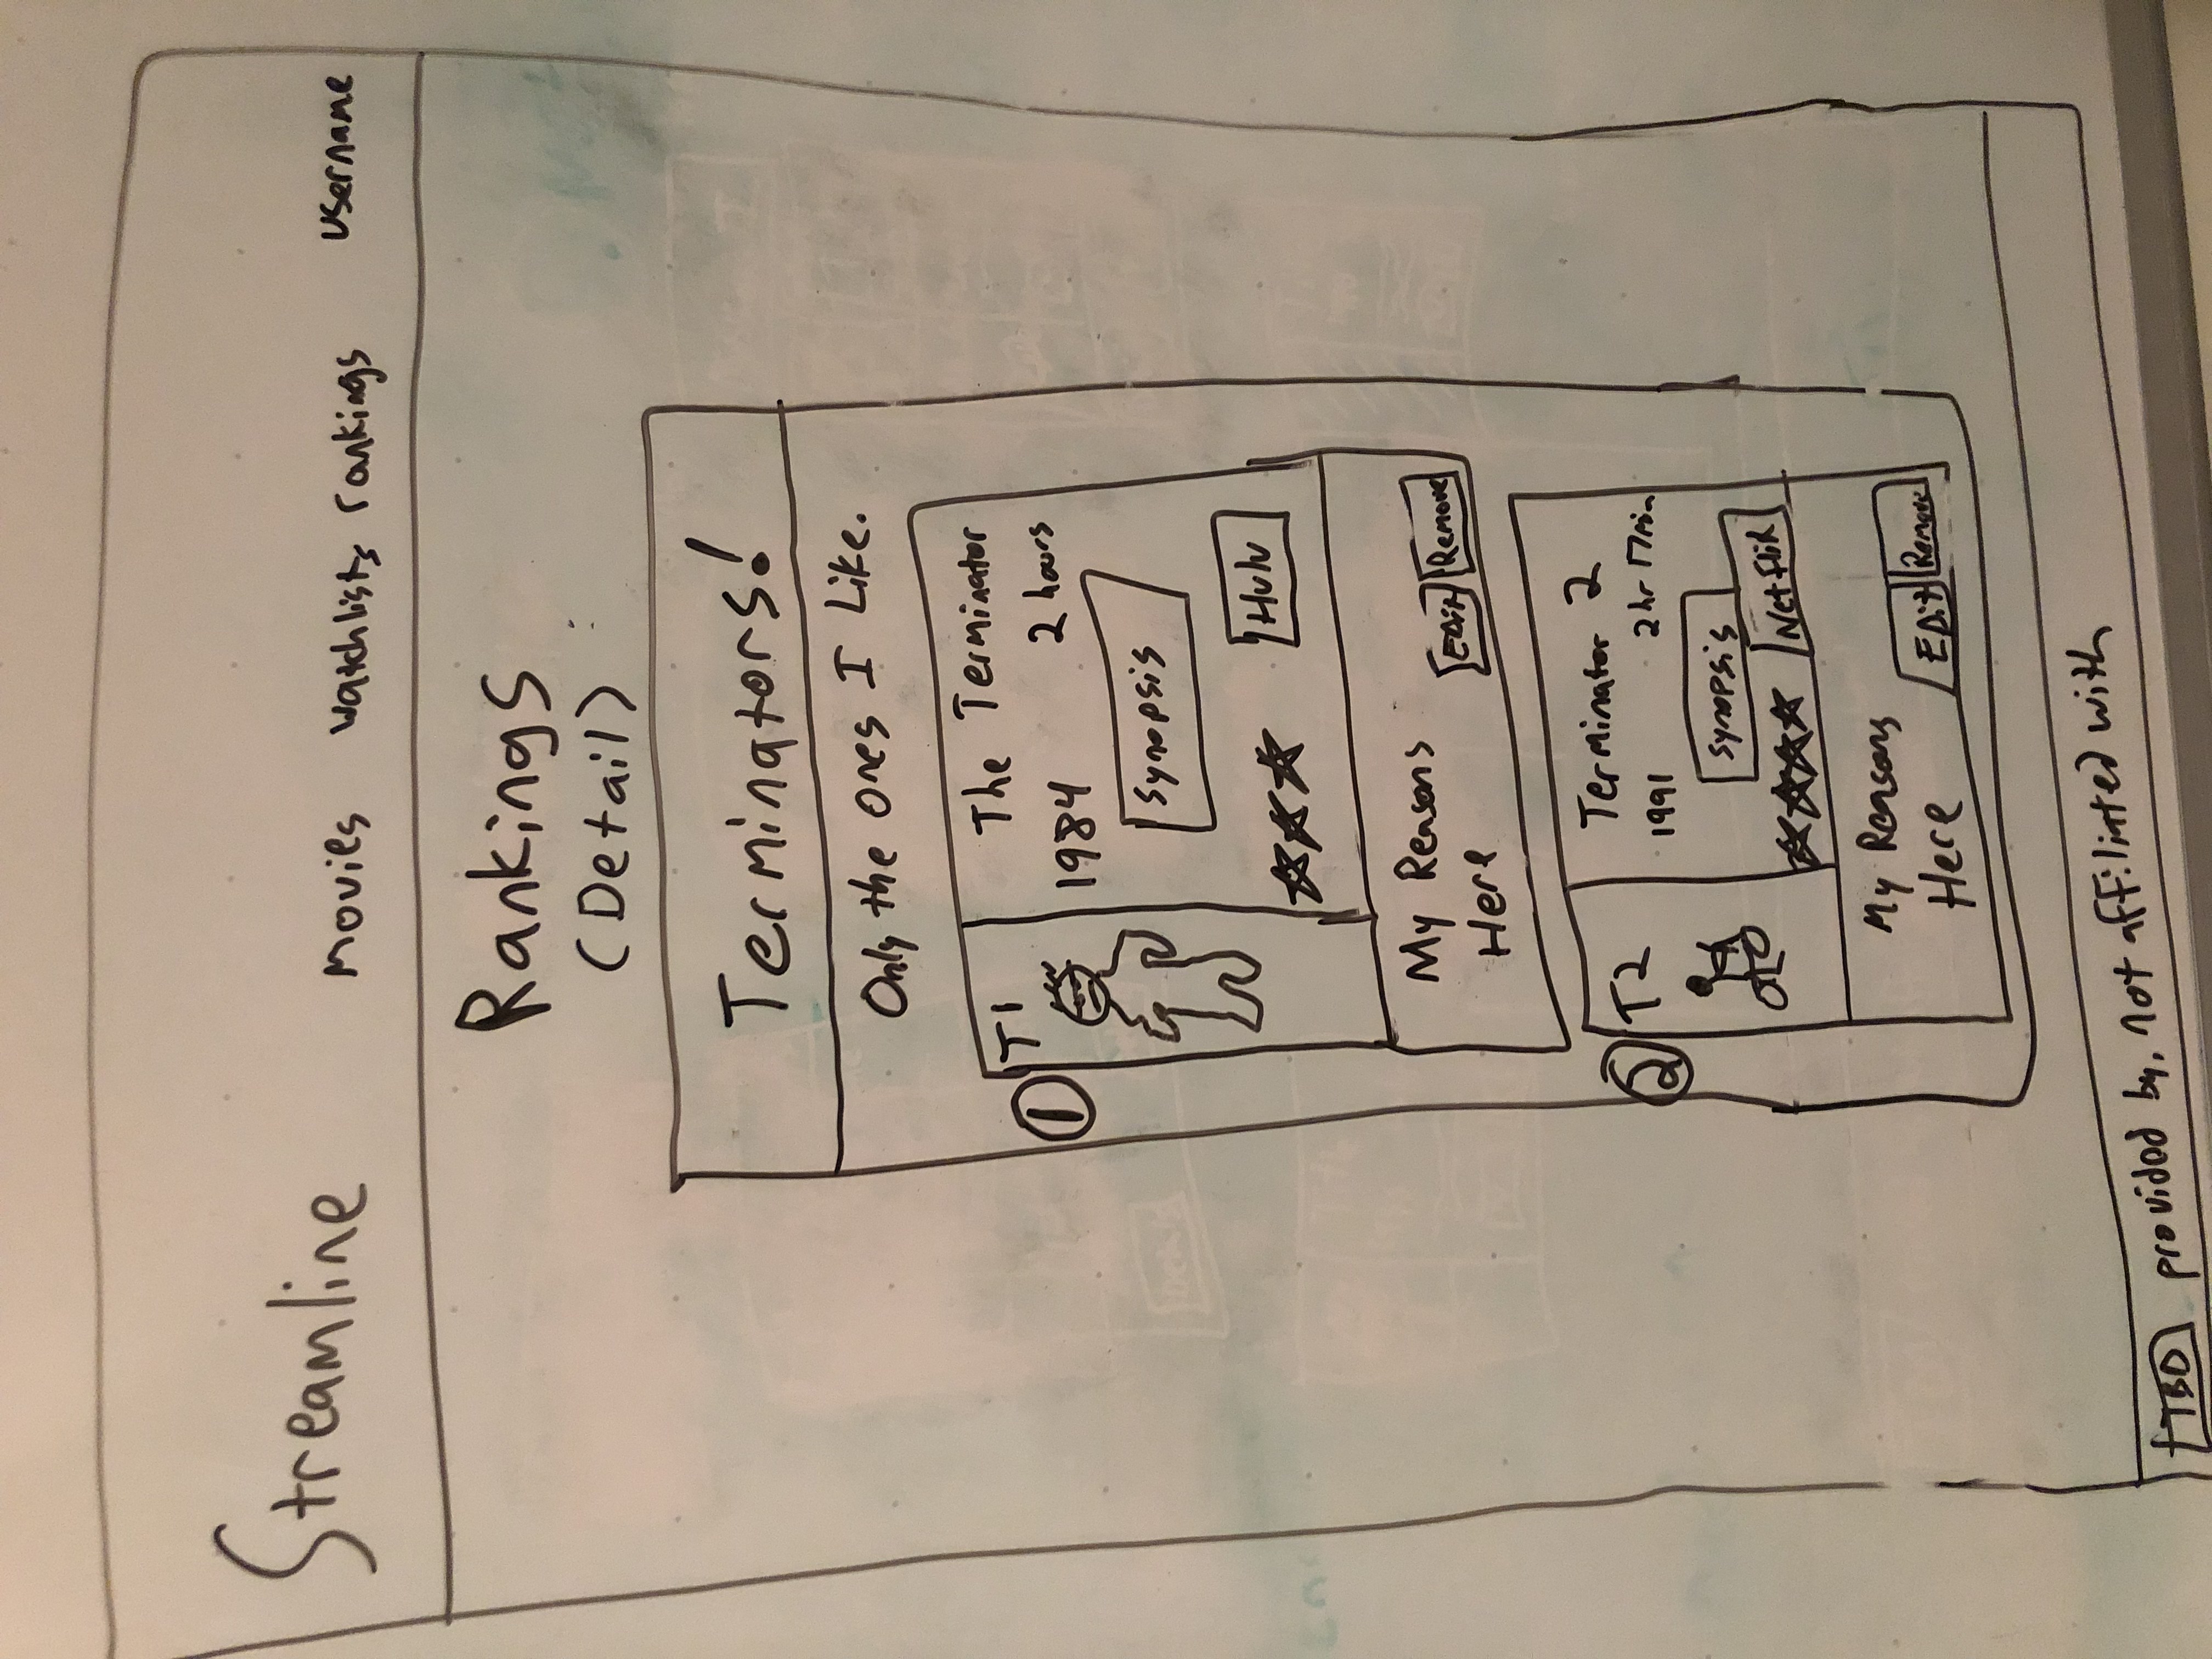 Streamline
Movies watchlists rankings username
Rankings
(Detail)
Terminators!
Only the ones I Like.
1
T1
The Terminator
1984 2 hours
Synopsis
Hulu
My Reasons
Here
Edit Remove
2
T2
Terminator 2
1991 2 hr 17 min
Synopsis
Netflix
My Reasons
Here
Edit Remove
TBD provided by, not affiliated with